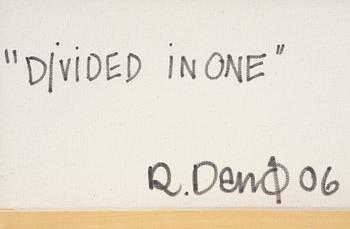 "DiViDED iN ONE"
R. Denø 06